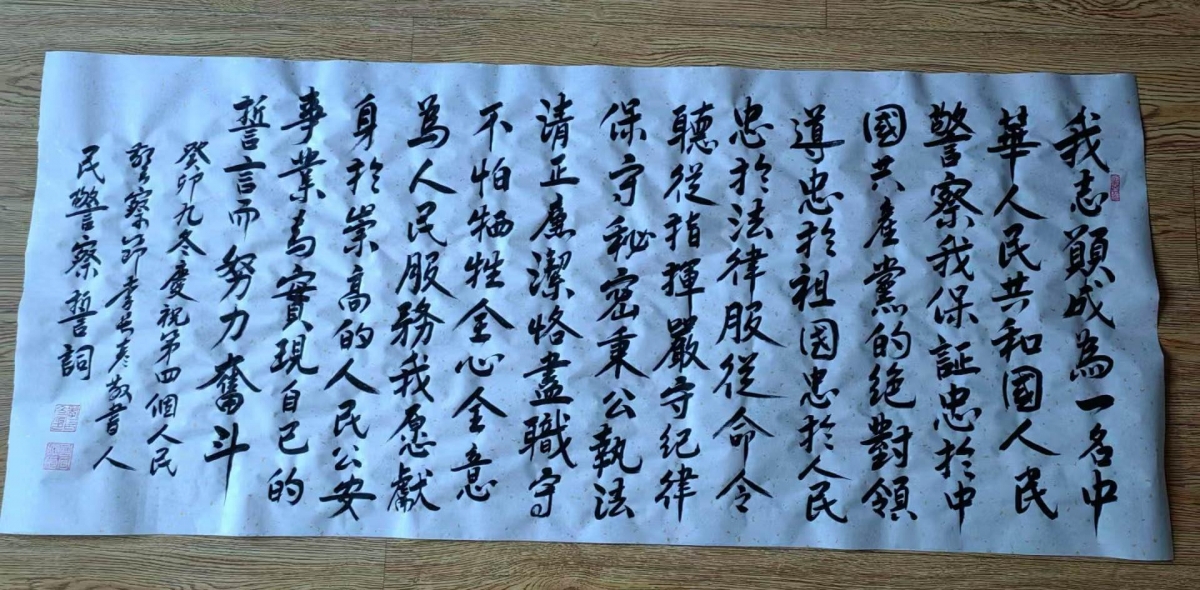 我志願成為一名中
華人民共和國人民
警察我保証忠於中
國共產黨的绝對領
導忠於祖国忠於人民
忠於法律服従命令
聽従指揮嚴守纪律
保守秘密秉公執法
清正廉潔恪盡職守
不怕牺牲全心全意
為人民服務我愿獻
身於崇高的人民公安
事業為實現自己的
誓言而努力奮斗
癸卯九冬慶祝第四個人民
警察節李长春敬書人
民警察誓詞